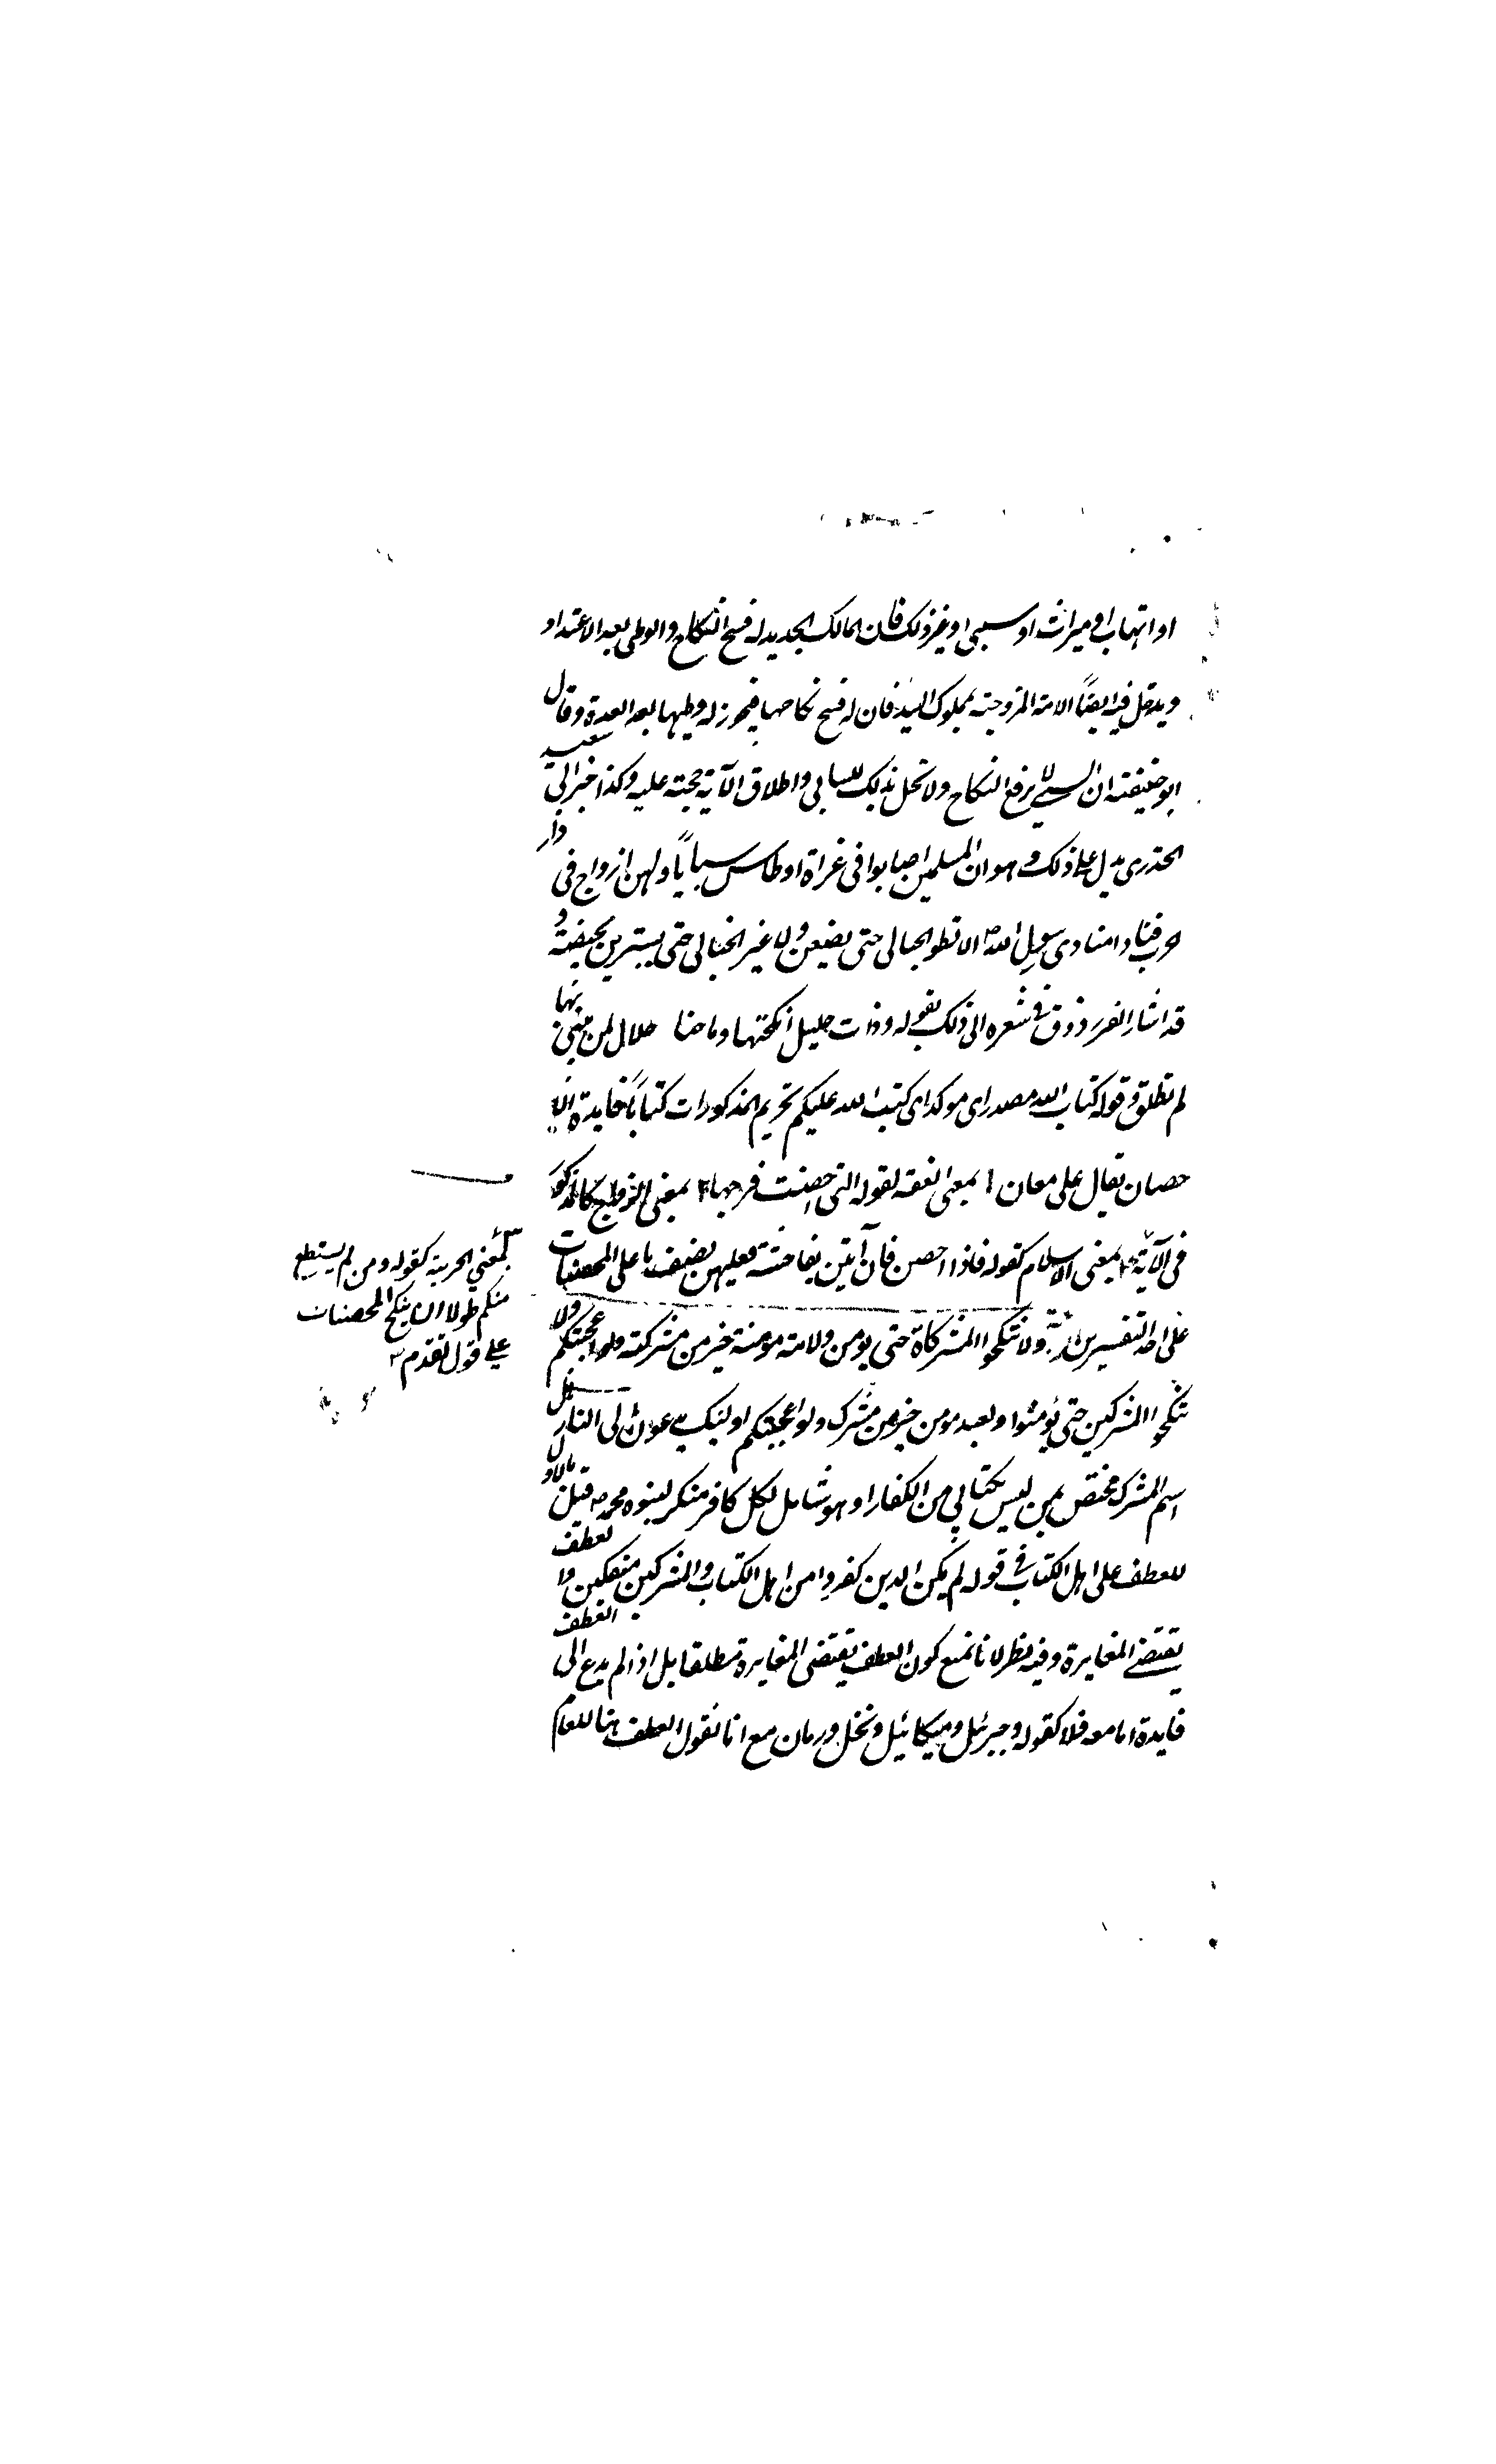 او اتهاب او ميراث او سبى او غير ذلك فان المالك الجديد له فسخ النكاح والوطى بعد الاعتداد
ويدخل فيه ايضاً الامة المزوجة بمملوك السيد فان له فسخ نكاحها فيجوز له وطيها بعد العدة وقال
ابو حنيفة ان السبى لا يرفع النكاح ولا تحل بذلك للسابى واطلاق الآية حجة عليه وكذا خبر ابى سعيد
الخدرى يدل على ذلك وهو ان المسلمين اصابوا فى غزاة اوطاس سبايا ولهن ازواج فى دار
الحرب فنادا منادى رسول الله ص الا لا توطو الحبالى حتى يضعن ولا غير الحبالى حتى يستبرين بحيضة و
قد اشار الفرزدق فى شعره الى ذلك بقوله وذات حليل انكحتها رماحنا حلال لمن يبنى بها
لم تطلق وقوله كتاب الله مصدر اى موكد اى كتب الله عليكم تحريم المذكورات كتاباً فايدة الا
حصان يقال على معان ا بمعنى العفة لقوله التى احصنت فرجها ٢ بمعنى التزويج كالمذكور
فى الآية ٣ بمعنى الاسلام كقوله فاذا احصن فان آتين بفاحشة فعليهن نصف ما على المحصنات
على احد التفسيرين ولا تنكحوا المشركاة حتى يومن ولامة مومنة خير من مشركة ولو اعجبتكم ولا
تنكحوا المشركين حتى يؤمنوا ولعبد مومن خير من مشرك ولو اعجبكم اولئك يدعون الى النار هل
اسم المشرك مختص بمن ليس بكتابى من الكفار او هو شامل لكل كافر منكر لنبوه محمد ص قيل بالاول
للعطف على اهل الكتاب فى قوله لم يكن الدين كفروا من اهل الكتاب والمشركين منفكين وا لعطف
يقتضى المغايرة وفيه نظر لانا نمنع كون العطف يقتضى المغايرة مطلقا بل اذا لم يدع الى العطف
فايدة اما معه فلا كقوله وجبرئل وميكائيل ونخل ورمان مع انا نقول العطف هنا للعام
بمعنى الحرية كقوله ومن لم يستطع
منكم طولا ان ينكح المحصنات
على قول تقدم